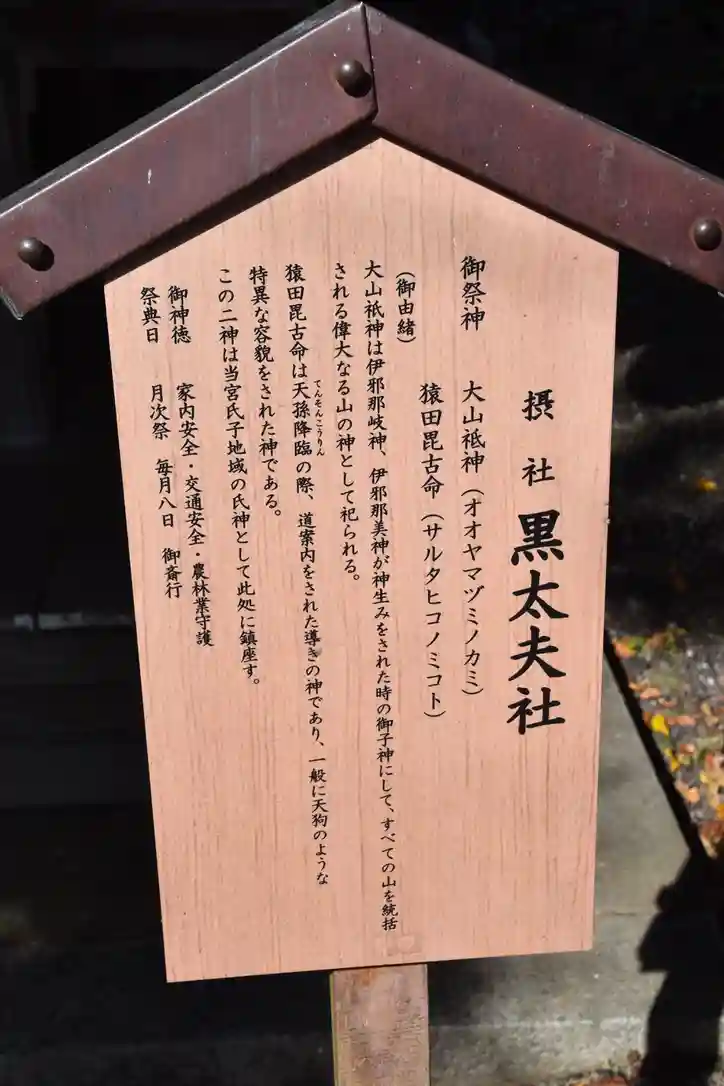 摂社 黒太夫社
御祭神 大山祗神(オオヤマヅミノカミ)
猿田毘古命(サルタヒコノミコト)
(御由緒)
大山祇神は伊邪那岐神、伊邪那美神が神生みをされた時の御子神にして、すべての山を統括
される偉大なる山の神として祀られる。
てんそんこうりん
猿田毘古命は天孫降臨の際、道案内をされた導きの神であり、一般に天狗のような
特異な容貌をされた神である。
この二神は当宮氏子地域の氏神として此処に鎮座す。
御神徳 家内安全・交通安全・農林業守護
祭典日 月次祭 毎月八日 御斎行